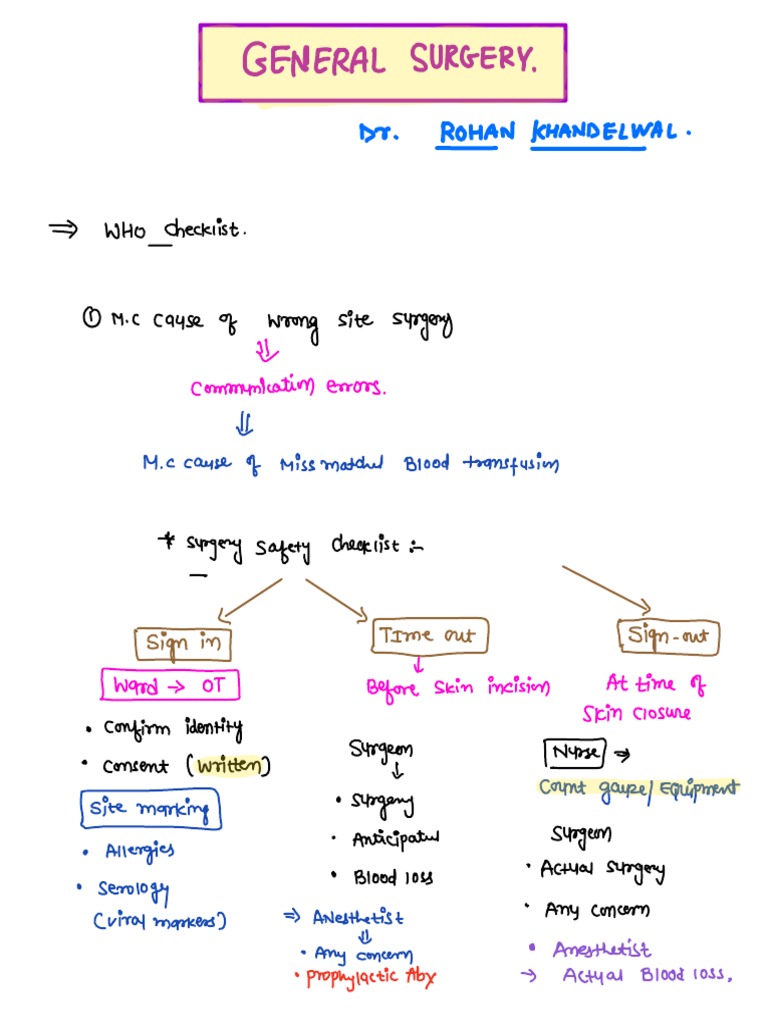 GENERAL SURGERY.
Dr. ROHAN KHANDELWAL.
⇒ WHO checklist.
① M.C cause of wrong site surgery
⇓
Communication errors.
⇓
M.C cause of Missmatched Blood transfusion
* Surgery Safety Checklist :-
Sign in
Ward → OT
• Confirm identity
• Consent (written)
Site marking
• Allergies
• Serology
(viral markers)
Time out
↓
Before skin incision
Surgeon
↓
• Surgery
• Anticipated
• Blood loss
⇒ Anesthetist
⇓
• Any concern
• Prophylactic Abx
Sign-out
At time of
Skin closure
Nurse ⇒
Count gauze/ Equipment
Surgeon
• Actual surgery
• Any concern
• Anesthetist
→ Actual Blood loss.